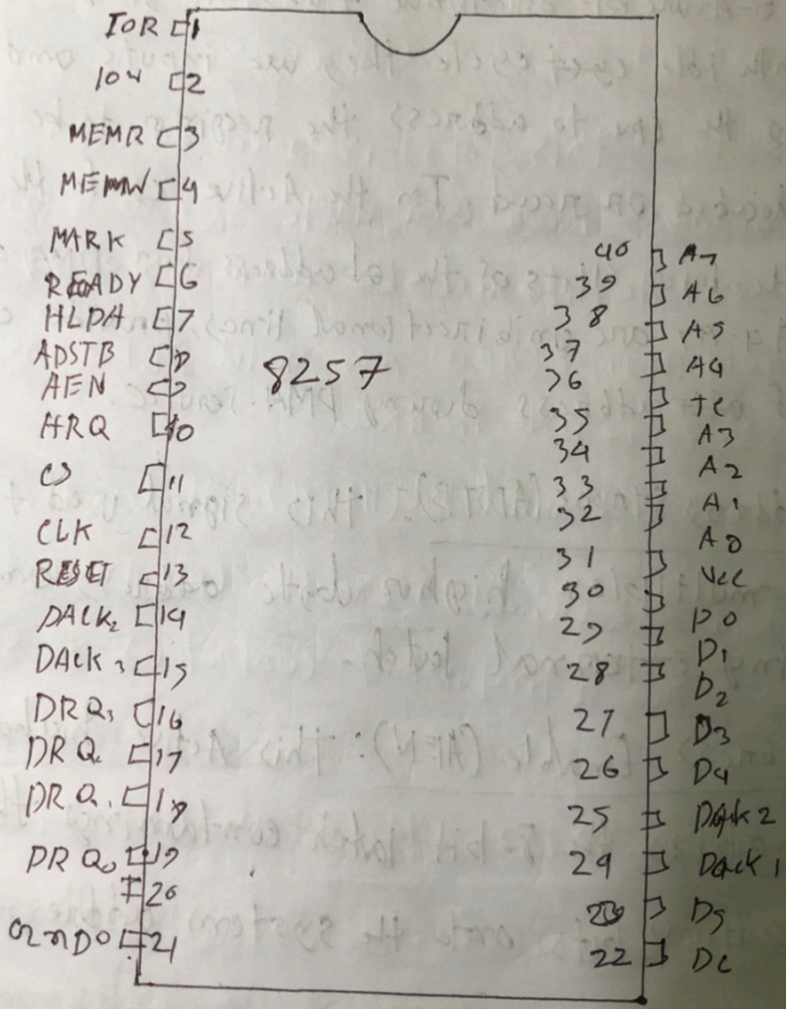 IOR 1
IOW 2
MEMR 3
MEMW 4
MARK 5
READY 6
HLDA 7
ADSTB 8
AEN 9
HRQ 10
CS 11
CLK 12
RESET 13
DACK2 14
DACK3 15
DRQ3 16
DRQ 17
DRQ1 18
DRQ0 19
20
GND0 21
8257
40 A7
39 A6
38 A5
37 A4
36 TC
35 A3
34 A2
33 A1
32 A0
31 VCC
30 D0
29 D1
28 D2
27 D3
26 D4
25 Dack 2
24 Dack 1
23 D5
22 DC